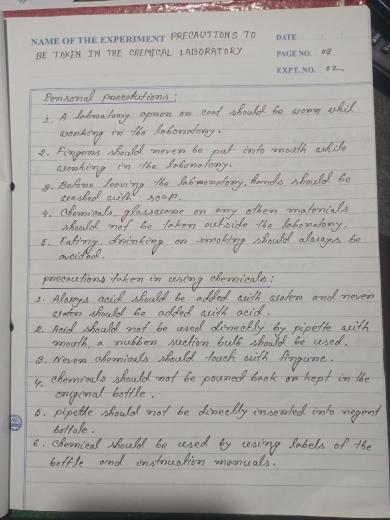 NAME OF THE EXPERIMENT PRECAUTIONS TO
BE TAKEN IN THE CHEMICAL LABORATORY
DATE
PAGE NO. 03
EXPT. NO. 02
Personal precautions:
1. A laboratory apron or coat should be worn whil
working in the laboratory.
2. Fingers should never be put into mouth while
working in the laboratory.
3. Before leaving the laboratory, hands should be
washed with soap.
4. Chemicals, glassware or any other materials
should not be taken outside the laboratory.
5. Eating, drinking or smoking should always be
avoided.
precautions taken in using chemicals:
1. Always acid should be added with water and never
water should be added with acid.
2. Acid should not be used directly by pipette with
mouth, a rubber suction bulb should be used.
3. Never chemicals should touch with fingure.
4. chemicals should not be poured back or kept in the
original bottle.
5. pipette should not be directly inserted into regent
bottole.
6. Chemical should be used by using labels of the
bottle and instruction manuals.